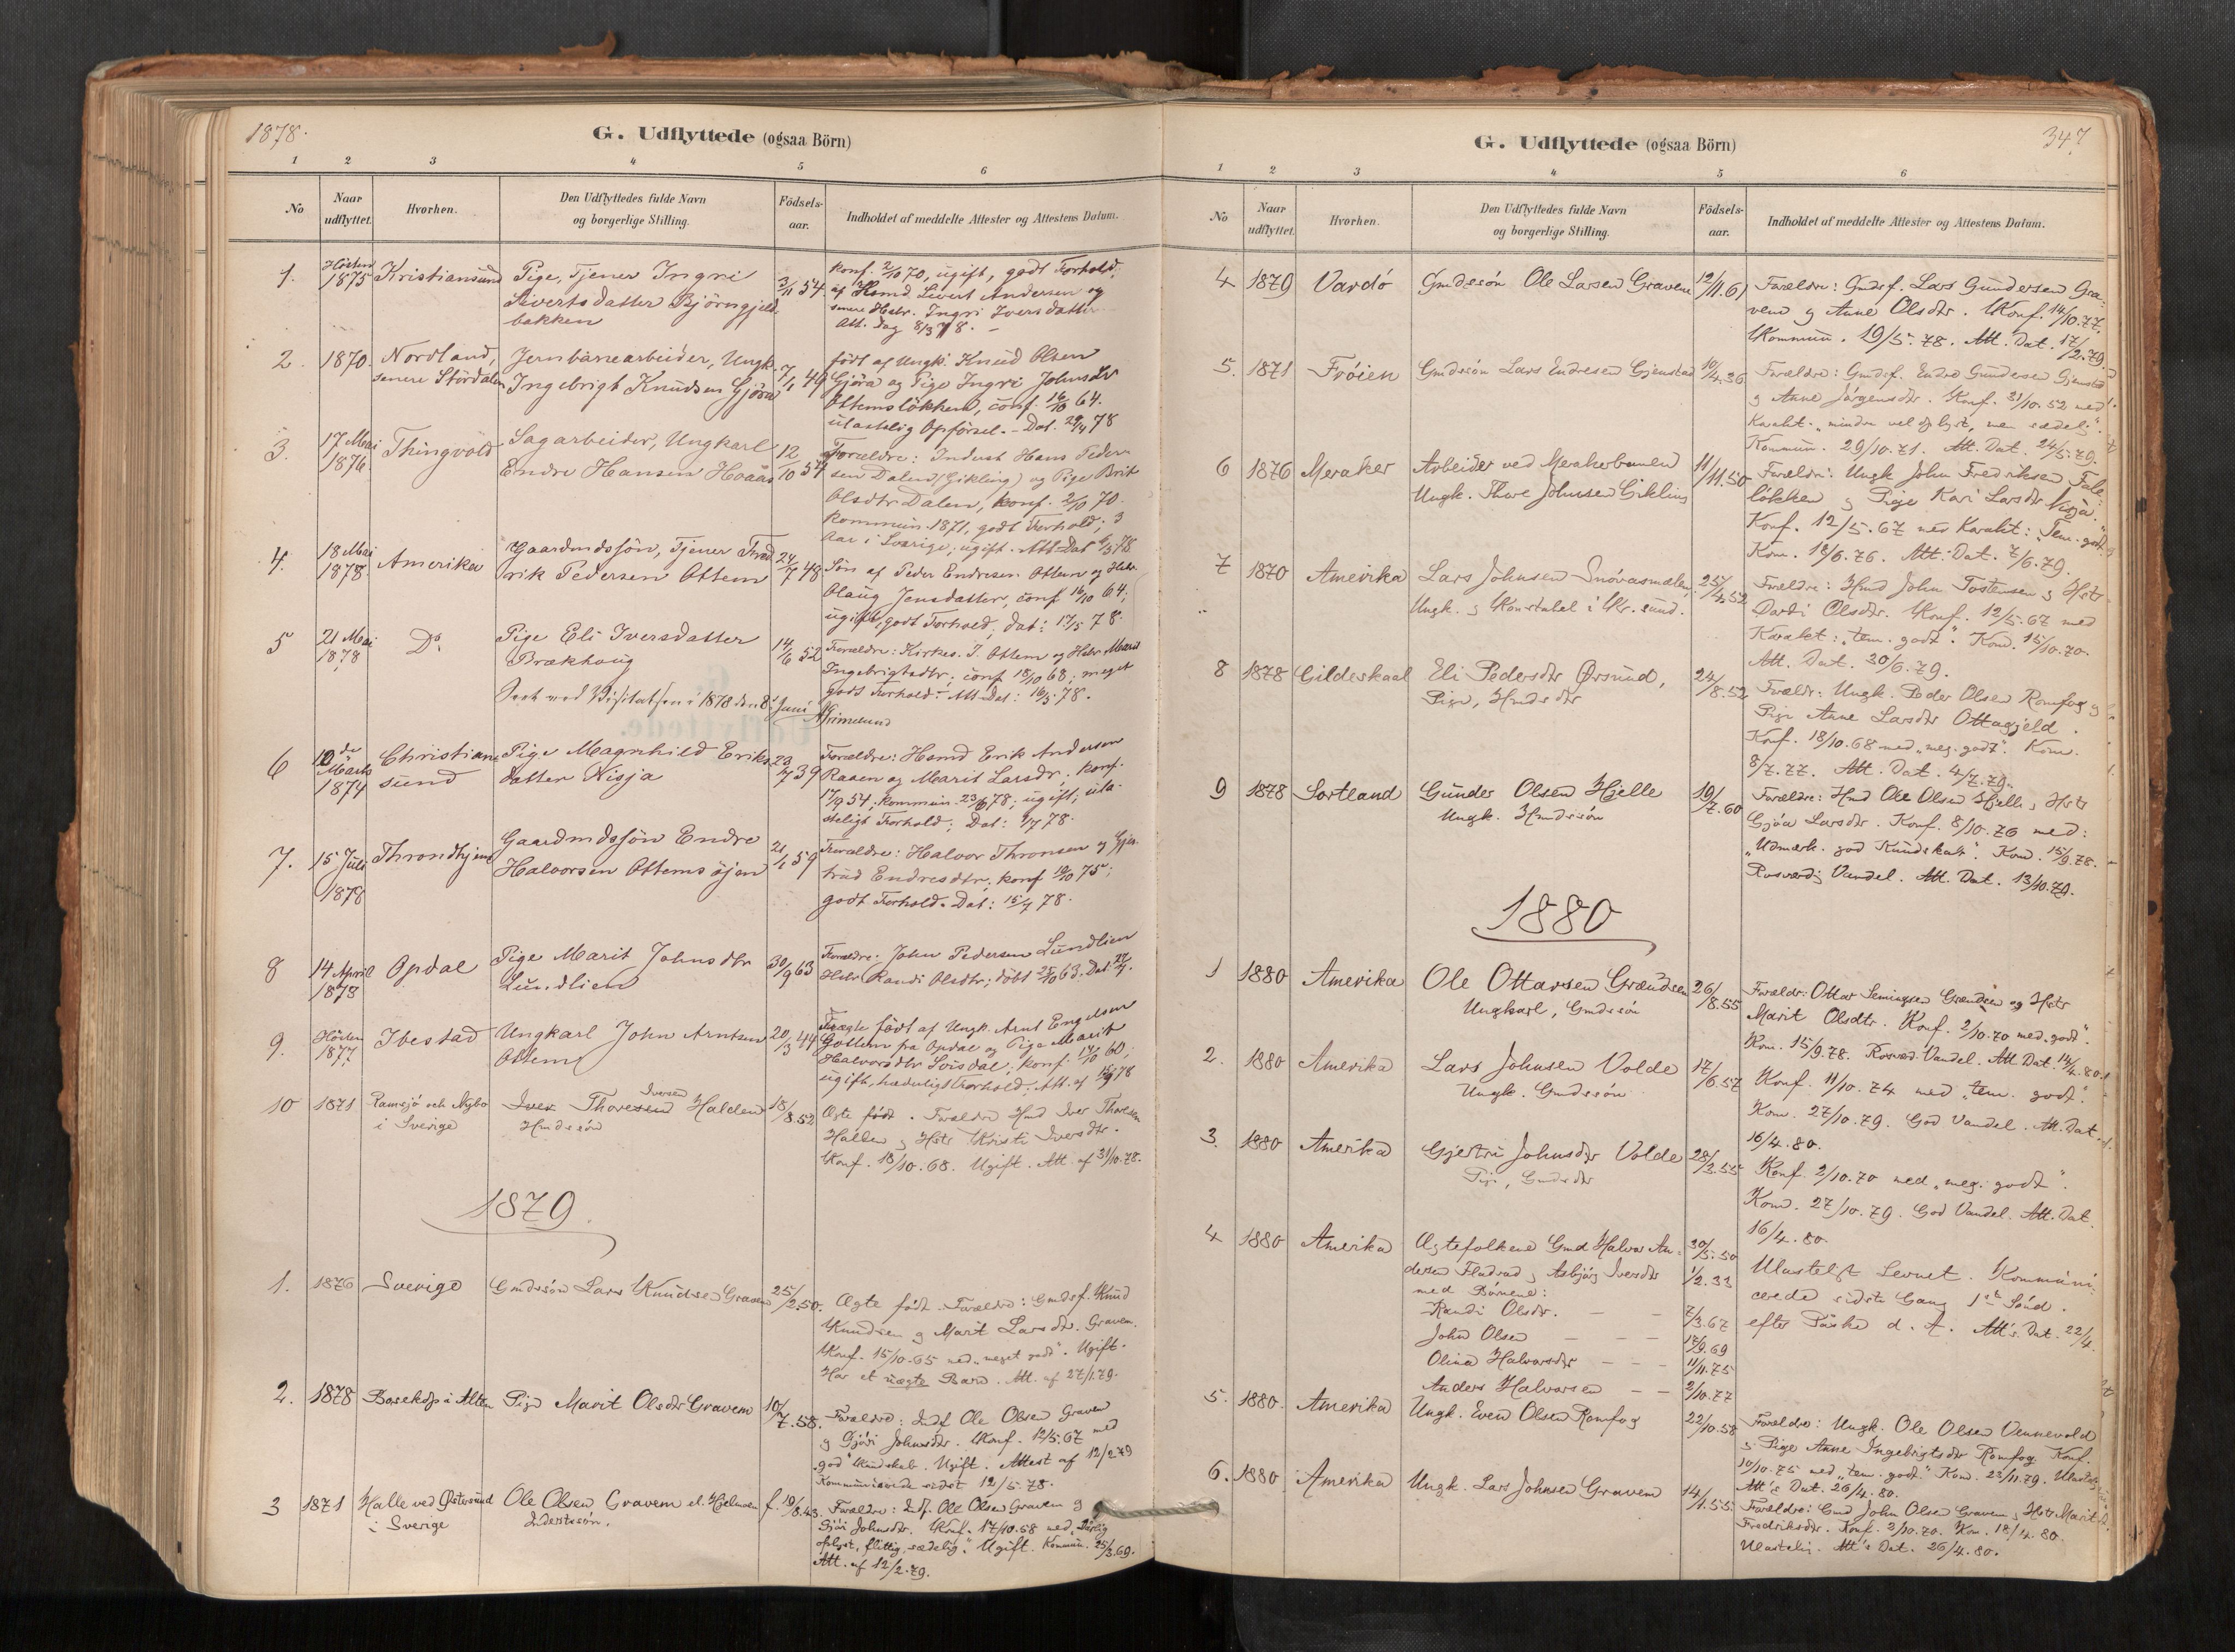 1878.
G. Udflyttede (ogsaa Börn)
1 2 3 4 5 6
No
Naar udflyttet.
Hvorhen.
Den Udflyttedes fulde Navn og borgerlige Stilling.
Födsels-aar.
Indholdet af meddelte Attester og Attestens Datum.
1. Hösten 1875 Kristiansund Pige, Tjener Ingri 3/11 54 konf. 2/10 70, ugift, godt Forhold,
Sivertsdatter Björngjeld- af Hsmd. Sivert Andersen og
bakken senere Hstr. Ingri Iversdatter
Att. Dag 8/3 78. -
2. 1870. Nordland, Jernbanearbeider, Ungk. 7/1 49 født af Ungk. Knud Olsen
senere Stördalen Ingebrigt Knudsen Gjöra Gjöra og Pige Ingri Johnsdtr
Ottemslökken, conf. 16/10 64.
ulastelig Opförsel. - Dat. 29/4 78
3. 17 Mai 1876 Thingvold Sagarbeider, Ungkarl 12/10 54 Forældre: Inderst Hans Peder-
Endre Hansen Hoaas sen Dalen (Gikling) og Pige Brit
Olsdtr Dalen, konf. 2/10 70.
kommun. 1871, godt Forhold; 3
Aar i Sverige, ugift. Att. Dat 6/5 78
4. 18 Mai 1878. Amerika Gaardmdssön, Tjener Fred- 24/7 48 Sön af Peder Endresen Ottem og Hstr.
rik Pedersen Ottem Olaug Jensdatter, conf 16/10 64;
ugift, godt Forhold, dat: 17/5 78.
5 21 Mai 1878 Do. Pige Eli Iversdatter 14/6 52 Forældre: Kirkes. I. Ottem og Hstr Marit
Brækhaug Ingebrigtsdtr; conf 18/10 68; meget
godt Forhold - Att. Dat: 16/5 78.
Seet ved Visitatsen i 1878 den 8de Juni Grimelund
6 10de Marts 1874 Christian- Pige Magnhild Eriks- 23/7 39 Forældre: Hsmd Erik Andersen
sund datter Nisja Raaen og Marit Larsdr. konf.
17/9 54; kommun. 23/6 78; ugift, ula-
steligt Forhold; Dat: 1/7 78.
7. 15 Juli 1878 Throndhjem Gaardmdssön Endre 21/1 59 Forældre: Halvor Thronsen og Gjer-
Halvorsen Ottemsöjen trud Endresdtr; konf 10/10 75;
godt Forhold. Dat: 15/7 78.
8 14 April 1878 Opdal Pige Marit Johnsdtr 30/9 63 Forældre. John Pedersen Lundlien
Lundlien Hstr Randi Olsdtr; döbt 25/10 63. Dat: 22/7.
9. Hösten 1877 Ibestad Ungkarl John Arntsen 20/3 44 Uægte født af Ungk. Arnt Engelsen
Ottem Gottem fra Opdal og Pige Marit
Halvorsdtr Loisdal; konf. 14/10 60;
ugift, hæderligt Forhold; Att. af 15/9 78
10 1871 Ramsjö och Nybo Iver Thoresen Iversen Halden 18/8.52 Ægte født. Forældre Hmd Iver Thoresen
i Sverige Hmdssön Hallen og Hstr Kristi Iversdtr.
Konf. 18/10.68. Ugift. Att. af 31/10.78.
1879.
1. 1876 Sverige Gmdssön Lars Knudsen Graven 25/2.50. Ægte født. Forældre: Gmdsf. Knud
Knudsen og Marit Larsdtr. Graven.
Konf. 15/10.65 med „meget godt". Ugift.
Har et uægte Barn. Att. af 27/1.79.
2. 1878 Bosekop i Alten Pige Marit Olsdtr Gravem 10/7.58. Forældre: Indf. Ole Olsen Gravem
og Gjöri Johnsdtr. Konf. 12/5.67 med
„god" Kundskab. Ugift. Attest af 12/2.79
Kommunicerede sidst 12/5.78.
3 1871 Halle ved Østersund Ole Olsen Gravem el. Hjelmoen f. 19/8.43. Forældre: Indf. Ole Olsen Gravem og
i Sverige Inderstssön. Gjöri Johnsdtr. Konf. 17/10.58 med „Daarlig
oplyst, flittig, sædelig." Ugift. Kommun. 25/3.69.
Att. af 12/2.79.
347
G. Udflyttede (ogsaa Börn)
1 2 3 4 5 6
No
Naar udflyttet.
Hvorhen.
Den Udflyttedes fulde Navn og borgerlige Stilling.
Födsels-aar.
Indholdet af meddelte Attester og Attestens Datum.
4 1879 Vardö Gmdssön Ole Larsen Gravem 12/11.61 Forældre: Gmdsf. Lars Gundersen Gra-
vem og Anne Olsdtr. Konf. 14/10.77.
Kommun. 19/5.78. Att. Dat. 17/2.79.
5. 1871 Fröien Gmdssön Lars Endresen Gjenstad 10/4.36 Forældre: Gmdsf. Endre Gundersen Gjenstad
og Anne Jörgensdtr. Konf. 31/10.52 med
Karakt. „mindre vel oplyst, men sædelig".
Kommun. 29/10.71. Att. Dat. 24/5.79.
6 1876 Meraker Arbeider ved Merakerbanen 11/11.50 Forældre: Ungk John Fredriksen Fale-
Ungk. Thore Johnsen Gikling lökken og Pige Kari Larsdtr Nisja.
Konf. 12/5.67 med Karakt: „Tem. godt."
Kom. 18/6.76. Att. Dat. 7/6.79.
7 1870 Amerika Lars Johnsen Snövasmælen, 25/4.52 Forældre: Hmd John Tostensen og Hstr
Ungk. og Konstabel i Kr.sund. Dordi Olsdtr. Konf. 12/5.67 med
Karakt: „tem. godt". Kom. 15/10.70.
Att. Dat. 30/6.79.
8 1878 Gildeskaal Eli Pedersdtr Ørsund, 24/8.52 Forældr: Ungk. Peder Olsen Romfog og
Pige, Hmdsdtr Pige Anne Larsdtr Ottagjeld.
Konf. 18/10.68 med „meg. godt". Kom.
8/7.77. Att. Dat. 4/7.79.
9 1878 Sortland Gunder Olsen Hjelle 19/7.60 Forældre: Hmd Ole Olsen Hjelle og Hstr
Ungk. Hmdssön Gjöa Larsdtr. Konf. 8/10.76 med:
„Udmærk. god Kundskab". Kom. 15/9.78.
Rosværdig Vandel. Att. Dat. 13/10.79.
1880
1 1880 Amerika Ole Ottarsen Grændsen 26/8.55 Forældr: Ottar Semingsen Grændsen og Hstr
Ungkarl, Gmdssön Marit Olsdtr. Konf. 2/10.70 med „godt".
Kom. 15/9.78. Rosværd. Vandel. Att. Dat. 14/4.80.
2. 1880 Amerika Lars Johnsen Volde 17/6.57 Konf. 11/10.74 med „tem. godt".
Ungk. Gmdssön Kom. 27/10.79. God Vandel. Att. Dat.
16/4.80.
3. 1880 Amerika Gjertru Johnsdtr Volde 28/3.55 Konf. 2/10.70 med „meg. godt".
Pige, Gmdsdtr Kom. 27/10.79. God Vandel. Att. Dat.
16/4.80.
4 1880 Amerika Ægtefolkene Gmd Halvor An- 30/5.50 Ulasteligt Levnet. Kommuni-
dersen Fladvad og Asbjörg Iversdtr 1/2.33 cerede sidste Gang 1ste Sönd.
med Börnene: efter Paaske d. A. Att's Dat. 22/4.
Randi Olsdr. — — 7/3.67
John Olsen — — — 17/9.69
Olina Halvorsdtr — — — 11/11.75
Anders Halvorsen — — 2/10.77
5. 1880. Amerika Ungk. Even Olsen Romfog 22/10.58 Forældre: Ungk. Ole Olsen Vennevold
og Pige Anne Ingebrigtsdtr Romfog Konf.
10/10.75 med „tem. godt." Kom. 23/11.79. Ulastelig
Att's Dat. 26/4.80.
6. 1880 Amerika Ungk. Lars Johnsen Gravem 14/1.55. Forældre: Gmd John Olsen Gravem og Hstr Marit
Fredriksdtr. Konf. 2/10.70. Kom. 18/4.80.
Ulastelig. Att's Dat. 26/4.80.